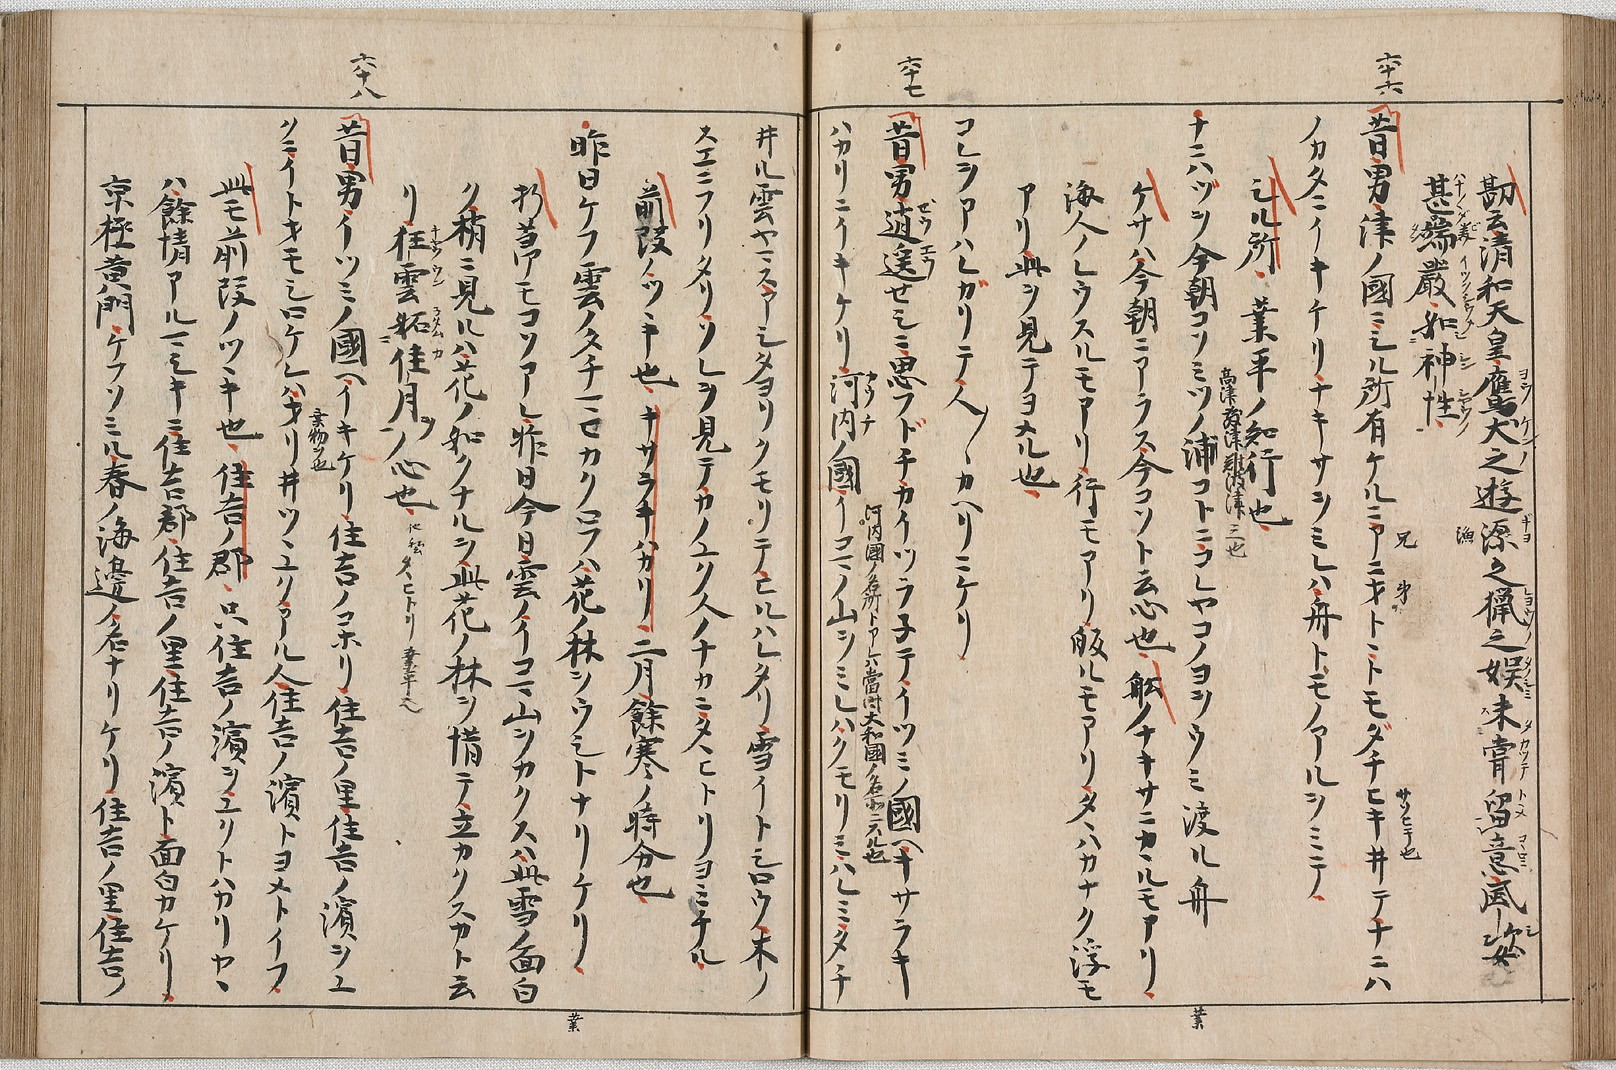 六十六
勘云清和天皇鷹犬之遊漁之猟之娯未嘗留意風姿
甚端厳如神性
昔男津ノ國ニシル所有ケルニアニオトヽトモダチヒキ井テナニハ
ノカタニイキケリナキサヲミレハ舟トモノアルヲミテ
シル所 業平ノ知行也
高津敷津難波津三也
ナニハヅヲ今朝コソミツノ浦コトニコレヤコノヨヲウミ渡ル舟
ケサハ今朝ニアラス今コソト云心也 舩ノナキサニカヽルモアリ
海人ノシワスルモアリ行モアリ皈ルモアリタヽハカナク浮モ
アリ此ヲ見テヨメル也
コレヲアハレガリテ人〳〵カヘリニケリ
六十七
昔男逍遥セシニ思フドチカイツラ子テイツミノ國ヘキサラキ
河内國ノ名所トアレハ當時大和國ノ名所ニスル也
ハカリニイキケリ河内ノ國イコマノ山ヲミレハクモリミハレミタチ
井ル雲ヤマスアシタヨリクモリテヒルハレタリ雪イト白ウ木ノ
スエニフリタリソレヲ見テカノユク人ノナカニタヽヒトリヨミケル
前段ノツヽキ也 キサラキハカリ 二月餘寒ノ時分也
昨日ケフ雲ノタチマヒカクロフハ花ノ林ヲウシトナリケリ
モコソアレ昨日今日雲ノイコマ山ヲカクスハ此雪ノ面白
ク梢ニ見ルハ花ノ如クナルヲ此花ノ林ヲ惜テ立カクスカト云
リ 狂雲妬佳月ノ心也
六十八
昔男イツミノ國ヘイキケリ住吉ノコホリ住吉ノ里住吉ノ濱ヲユ
クニイトオモシロケレハオリ井ツヽユク アル人住吉ノ濱トヨメトイフ
乗物也
此モ前段ノツヽキ也 住吉ノ郡 只住吉ノ濱ヲユクトハカリヤヽ
ハ餘情アルマシキニ住吉郡住吉ノ里住吉ノ濱ト面白カケリ
京極黄門 ケフソミル春ノ海邊ノ名ナリケリ住吉ノ里住吉ノ
業
業